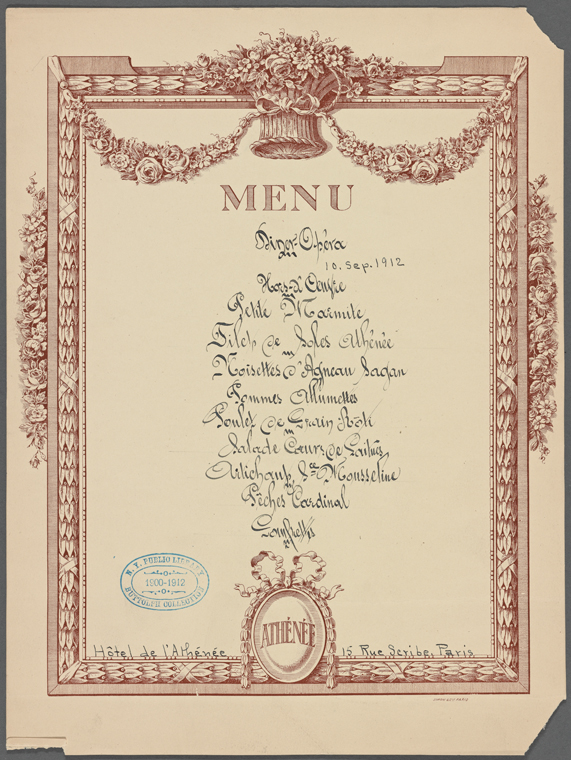 MENU
Diner-Opéra
10. Sep. 1912
Hors-d'Oeuvre
Petite Marmite
Filet de Soles Athénée
Noisettes d'Agneau Sagan
Pommes Allumettes
Poulet de Grain Roti
Salade Coeurs de Laitues
Artichaut Sce Mousseline
Pêches Cardinal
N. Y. PUBLIC LIBRARY
1900-1912
BUTTOLPH COLLECTION
ATHÉNÉE
Hôtel de l'Athénée 15 Rue Scribe, Paris